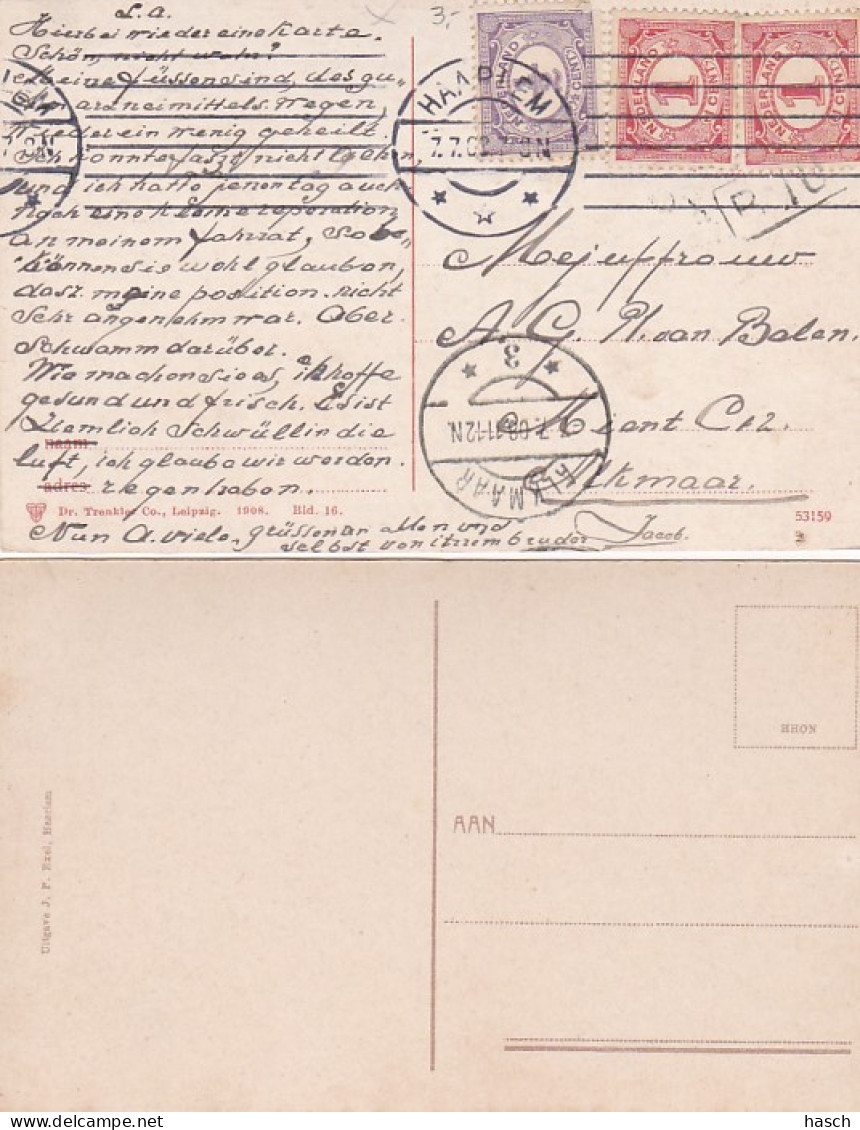 L. a.
Hierbei wieder eine Karte.
Schön, nicht wohn?
Meine füssen sind, des gu-
ten arzneimittels. Wegen,
Wieder ein wenig geheilt.
Ich konnte faszt nicht gehen,
und ich hatte auch
noch eine kleine reparation
an meinem fahrrat, So
können sie wohl glauben,
dasz meine position nicht
Sehr angenehm war. Ober
Schwamm darüber.
Wie machen sie es, ich hoffe
gesund und frisch. Es ist
Ziemlich Schwüll in die
naam
luft, ich glaube wir werden
adres regen haben.
Dr. Trenkler Co., Leipzig. 1908. Bld. 16.
53159
Nun A. viele grüssen an allen und
selbst von ihrem bruder Jacob.
3,-
NEDERLAND
CENT
NEDERLAND
1
CENT
NEDERLAND
1
CENT
HAARLEM
7.7.08
N
Mejuffrouw
A. G. H. van Balen.
Mient C12.
Alkmaar.
ALKMAAR
7.7.08.11-12N
3
HHON
AAN
Uitgave J. F. Exel, Haarlem
hasch